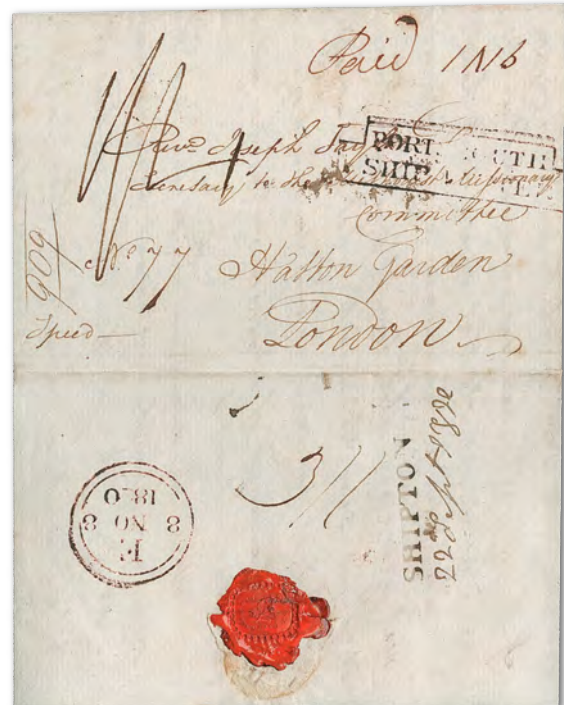 Paid 1N6
Revd Joseph
PORTSMOUTH
SHIP LETTER
Secretary to the Missionary
Committee
No 77 Hatton Garden
London
909
Speed
3/1
SHIPTON
22d Sept 1820
F
8 NO 8
1820